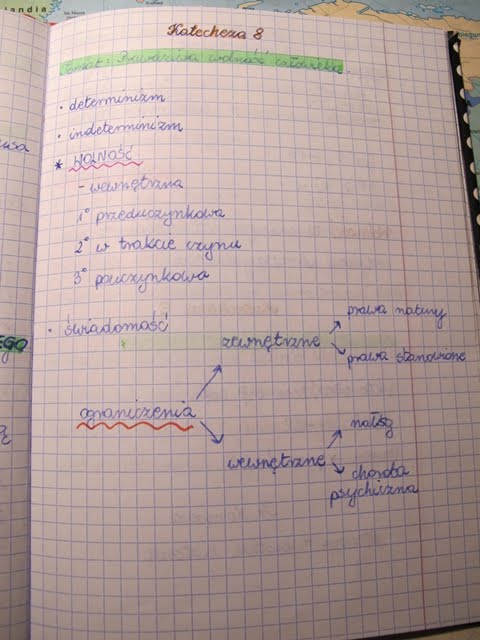 Katecheza 8
Temat: Prawdziwa wolność człowieka.
• determinizm
• indeterminizm
* WOLNOŚĆ
- wewnętrzna
1° przeduczynkowa
2° w trakcie czynu
3° pouczynkowa
• świadomość
zewnętrzne
prawa natury
prawa stanowione
ograniczenia
wewnętrzne
nałóg
choroba
psychiczna
EGO